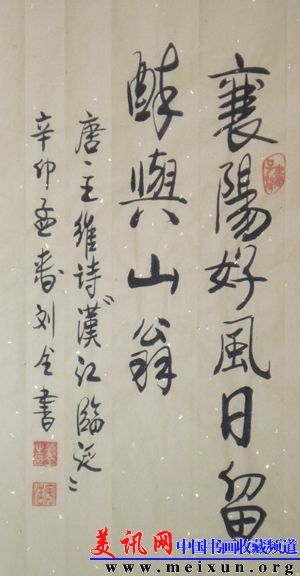 襄陽好風日留
醉與山翁
唐、王維诗“漢江臨泛”
辛卯孟春刘全書
美讯网中国书画收藏频道
www.meixun.net